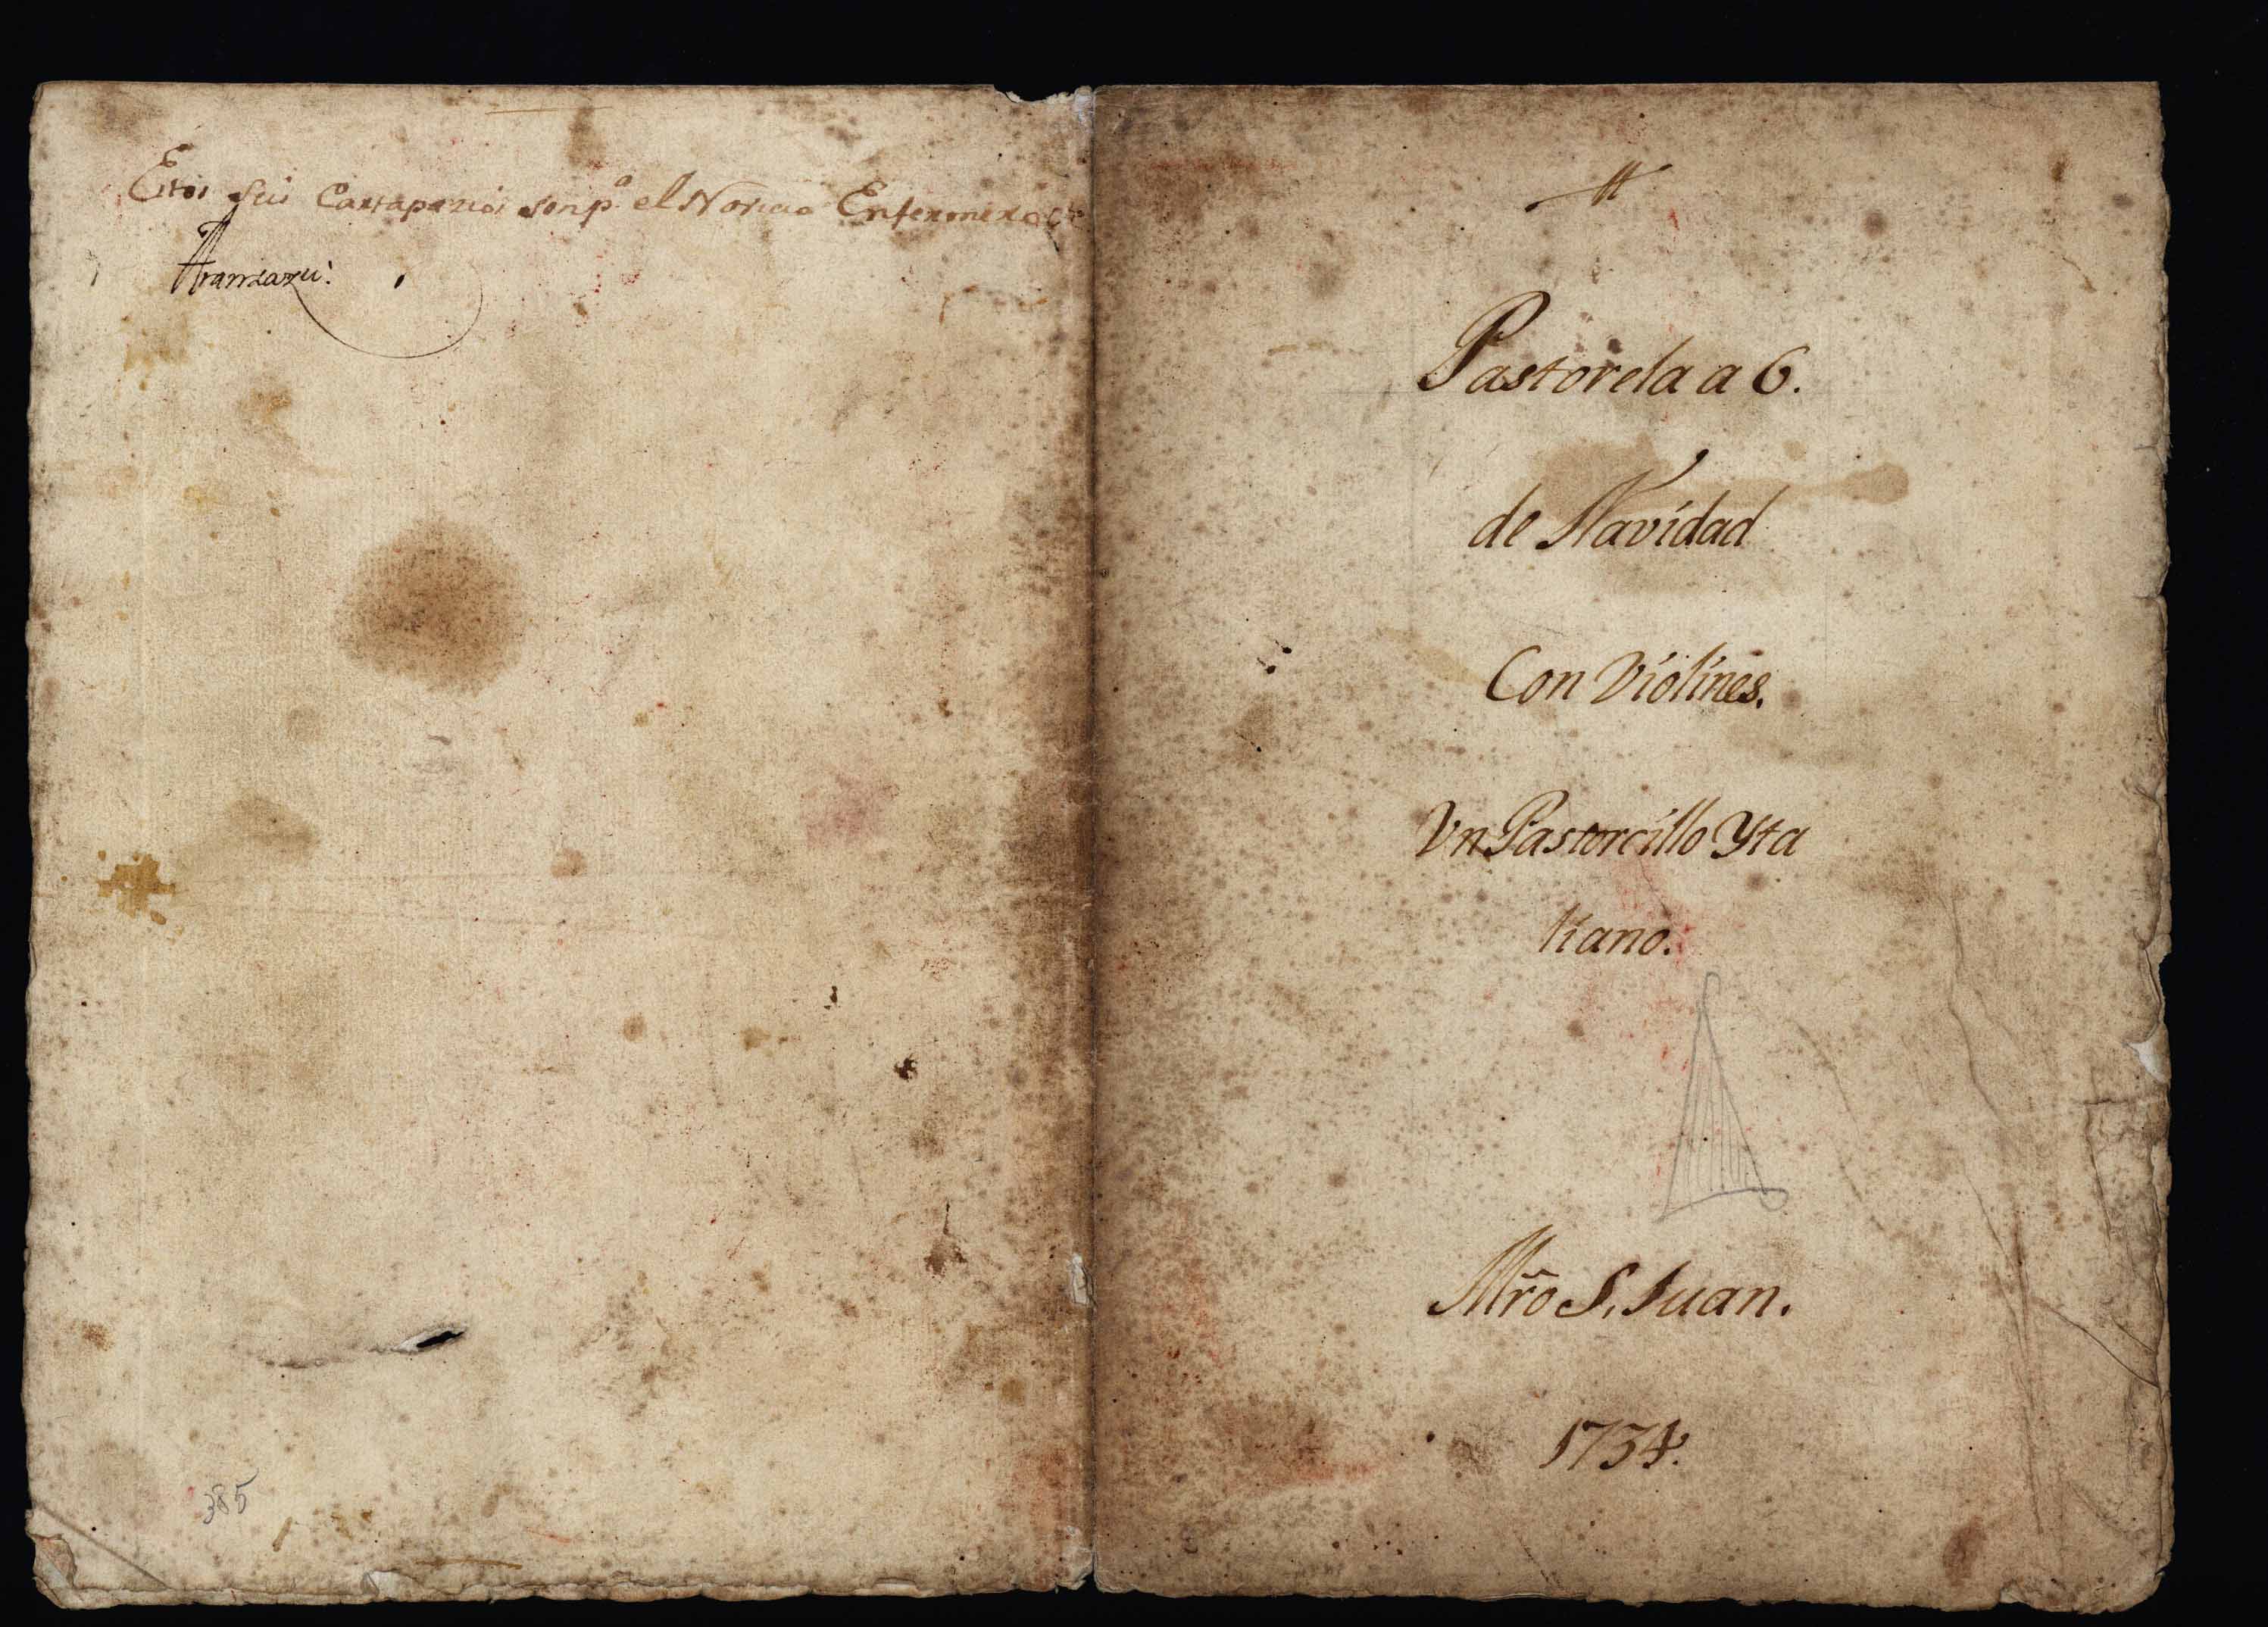 Estos seis Cartapazios son pª el Novicio Enfermero de
Aranzazu:
385
Pastorela a 6.
de Navidad
Con Violines.
Vn Pastorcillo Yta
liano.
Mro S. Juan.
1734.